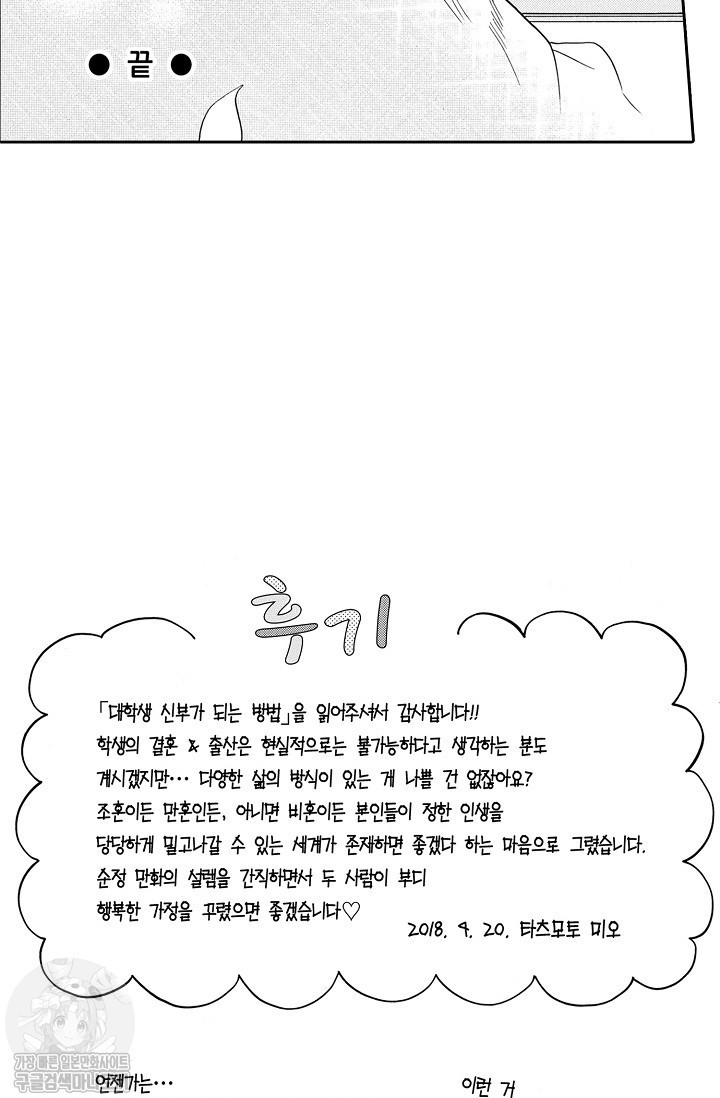 ● 끝 ●
후기
「대학생 신부가 되는 방법」을 읽어주셔서 감사합니다!!
학생의 결혼 & 출산은 현실적으로는 불가능하다고 생각하는 분도
계시겠지만… 다양한 삶의 방식이 있는 게 나쁠 건 없잖아요?
조혼이든 만혼인든, 아니면 비혼이든 본인들이 정한 인생을
당당하게 밀고나갈 수 있는 세계가 존재하면 좋겠다 하는 마음으로 그렸습니다.
순정 만화의 설렘을 간직하면서 두 사람이 부디
행복한 가정을 꾸렸으면 좋겠습니다♡
2018. 9. 20. 타츠모토 미오
가장 빠른 일본만화사이트
구글검색마나
언젠가는…
이런 거